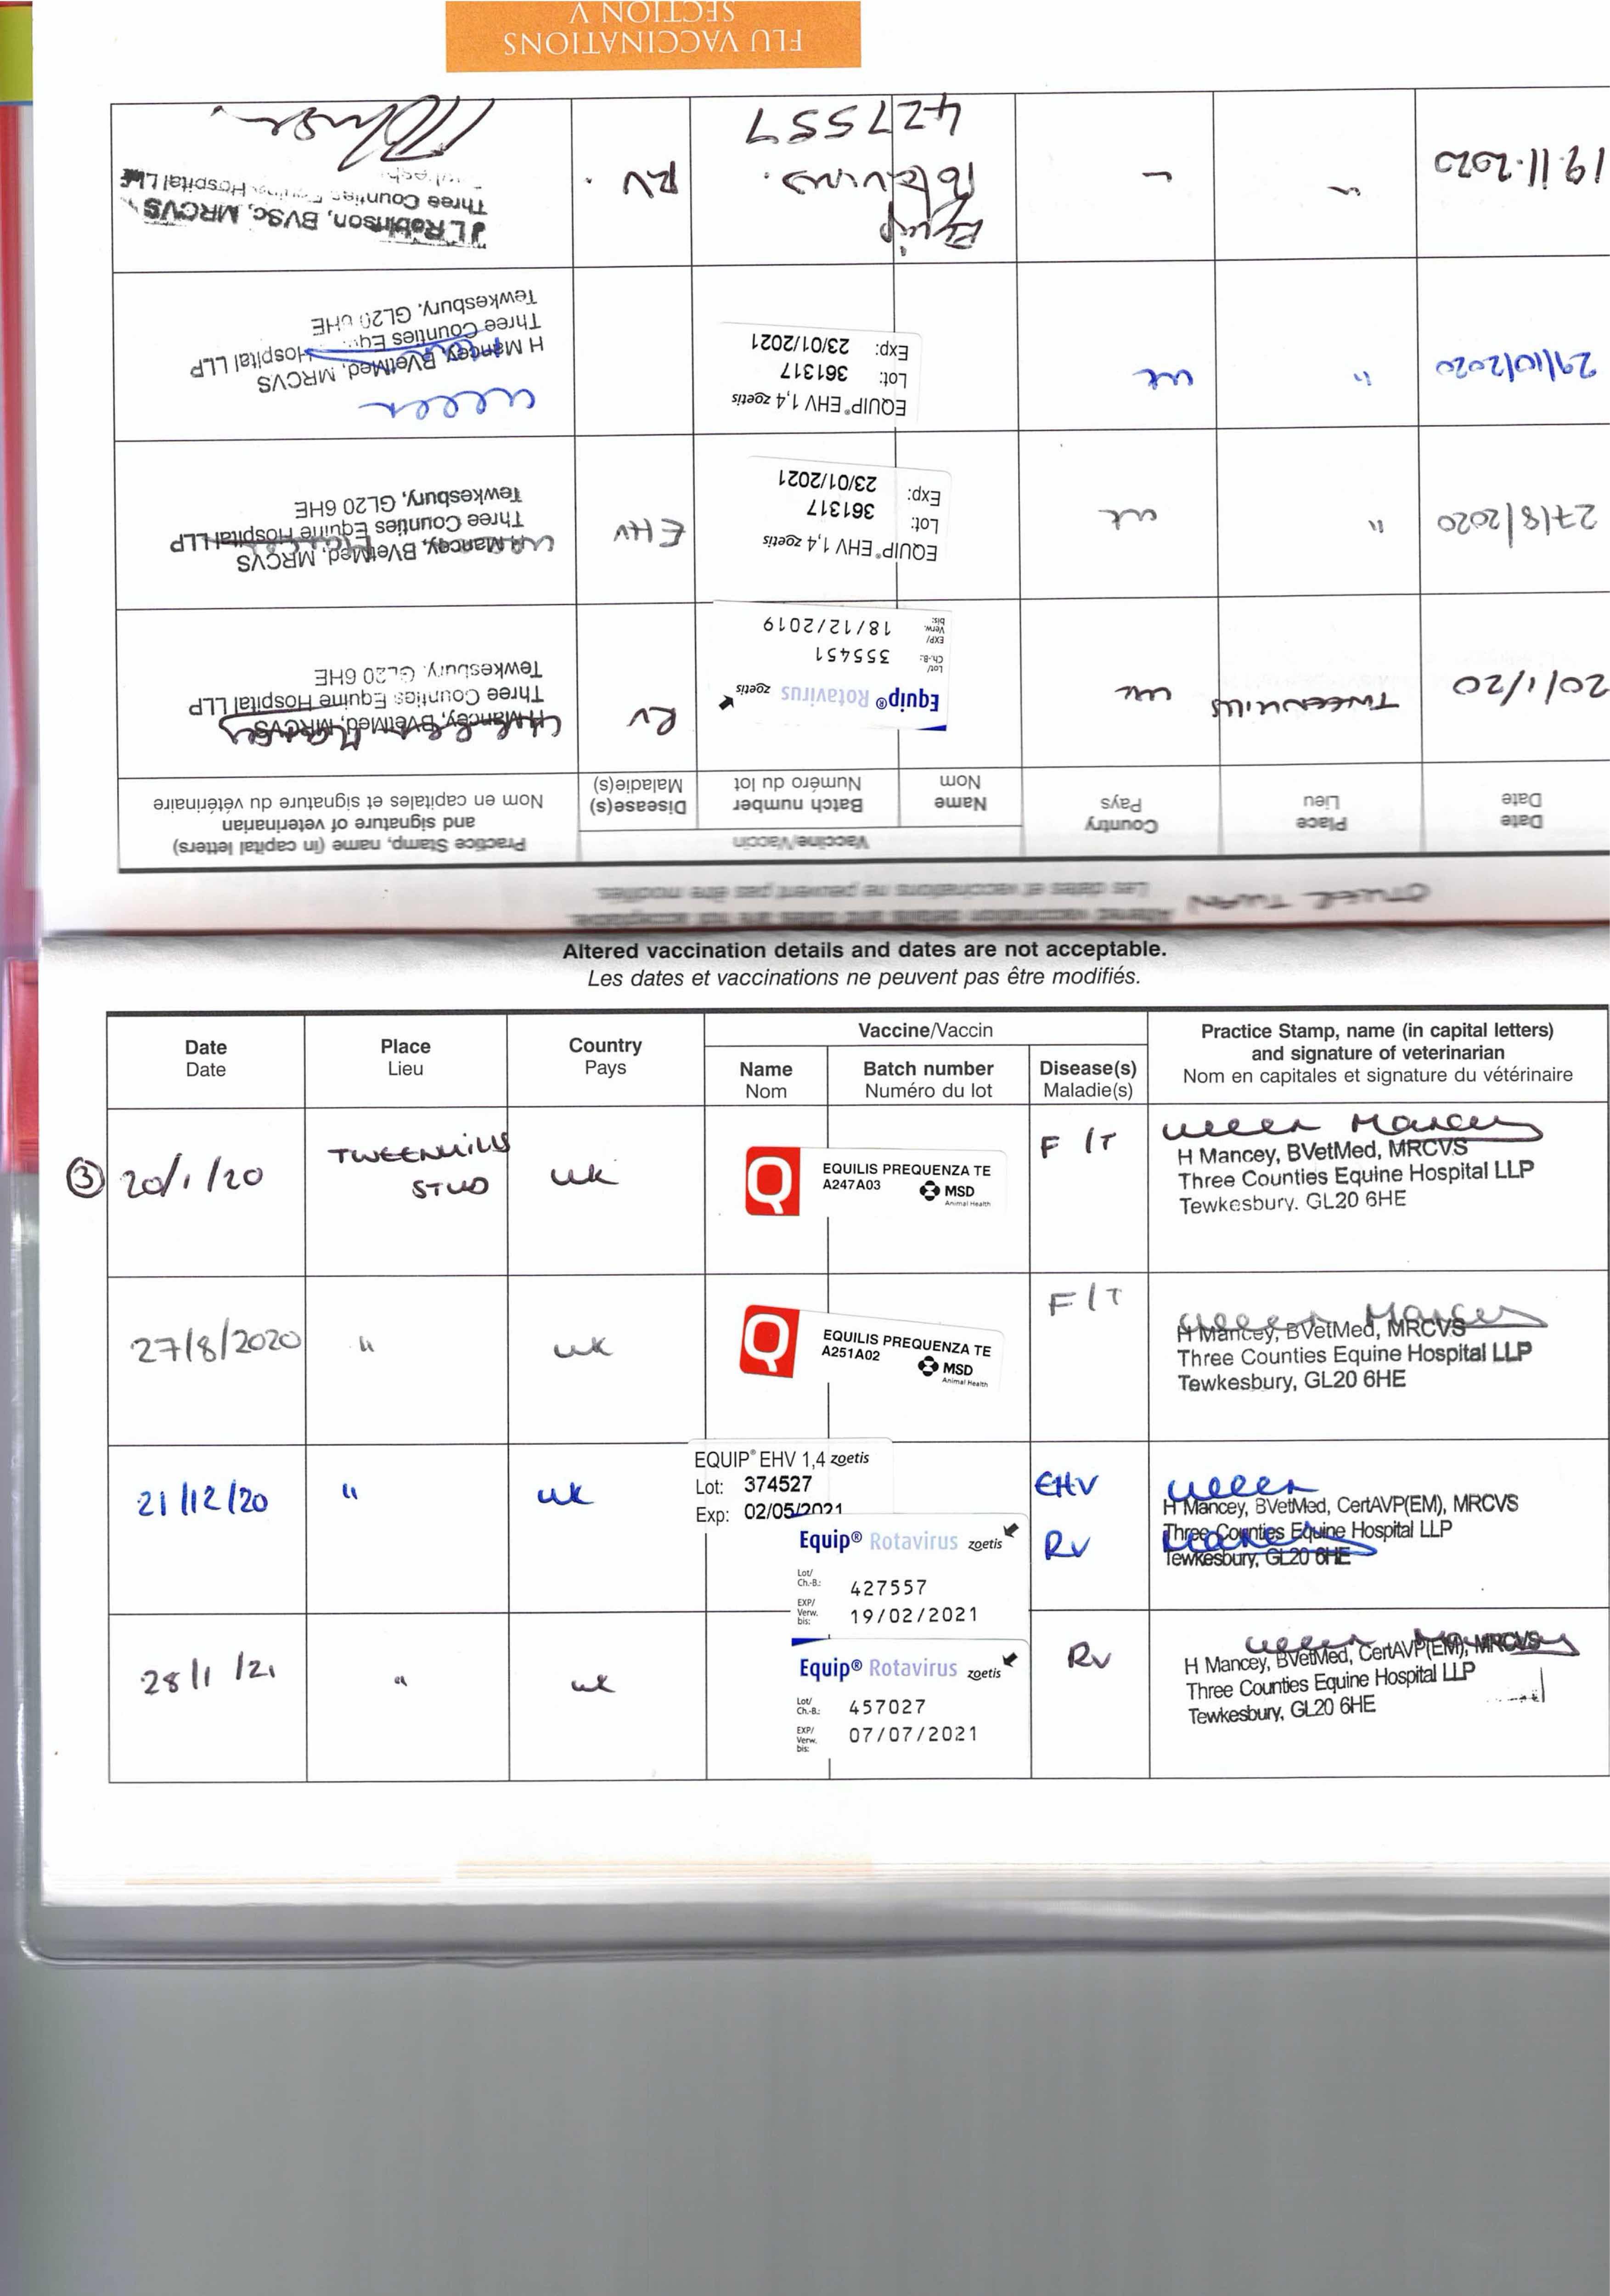 FLU VACCINATIONS
SECTION V
OTHER THAN
Altered vaccination details and dates are not acceptable.
Les dates et vaccinations ne peuvent pas être modifiés.
Date
Date
Place
Lieu
Country
Pays
Vaccine/Vaccin
Name
Nom
Batch number
Numéro du lot
Disease(s)
Maladie(s)
Practice Stamp, name (in capital letters)
and signature of veterinarian
Nom en capitales et signature du vétérinaire
20/1/20
TWEENHILLS
UK
Equip® Rotavirus zoetis
Lot/
Ch.-B.:
355451
EXP/
Verw.
bis:
18/12/2019
RV
H Mancey, BVetMed, MRCVS
Three Counties Equine Hospital LLP
Tewkesbury. GL20 6HE
27/8/2020
"
UK
EQUIP® EHV 1,4 zoetis
Lot: 361317
Exp: 23/01/2021
EHV
H Mancey, BVetMed, MRCVS
Three Counties Equine Hospital LLP
Tewkesbury, GL20 6HE
29/10/2020
"
UK
EQUIP® EHV 1,4 zoetis
Lot: 361317
Exp: 23/01/2021
H Mancey, BVetMed, MRCVS
Three Counties Equine Hospital LLP
Tewkesbury, GL20 6HE
19.11.2020
"
Equip
Rotavirus.
427557
RV.
JL Robinson, BVSc, MRCVS
Three Counties Equine Hospital LLP
Altered vaccination details and dates are not acceptable.
Les dates et vaccinations ne peuvent pas être modifiés.
Date
Date
Place
Lieu
Country
Pays
Vaccine/Vaccin
Name
Nom
Batch number
Numéro du lot
Disease(s)
Maladie(s)
Practice Stamp, name (in capital letters)
and signature of veterinarian
Nom en capitales et signature du vétérinaire
3 20/1/20
TWEENHILLS
STUD
UK
Q
EQUILIS PREQUENZA TE
A247A03
MSD
Animal Health
F/T
Mancey
H Mancey, BVetMed, MRCVS
Three Counties Equine Hospital LLP
Tewkesbury. GL20 6HE
27/8/2020
"
UK
Q
EQUILIS PREQUENZA TE
A251A02
MSD
Animal Health
F/T
Mancey
H Mancey, BVetMed, MRCVS
Three Counties Equine Hospital LLP
Tewkesbury, GL20 6HE
21/12/20
"
UK
EQUIP® EHV 1,4 zoetis
Lot: 374527
Exp: 02/05/2021
Equip® Rotavirus zoetis
Lot/
Ch.-B.:
427557
EXP/
Verw.
bis:
19/02/2021
EHV
RV
H Mancey, BVetMed, CertAVP(EM), MRCVS
Three Counties Equine Hospital LLP
Tewkesbury, GL20 6HE
28/1/21
"
UK
Equip® Rotavirus zoetis
Lot/
Ch.-B.:
457027
EXP/
Verw.
bis:
07/07/2021
RV
H Mancey, BVetMed, CertAVP(EM), MRCVS
Three Counties Equine Hospital LLP
Tewkesbury, GL20 6HE